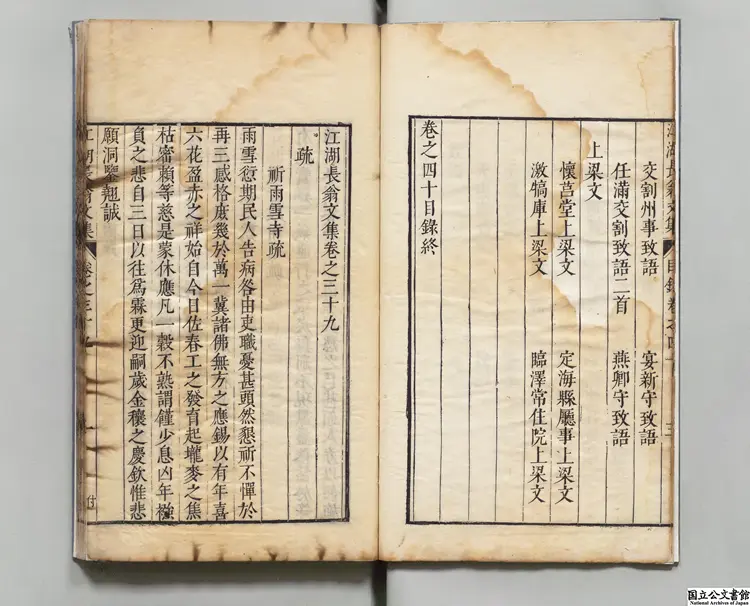 江湖長翁文集 目錄卷之四十
交割州事致語 宴新守致語
任滿交割致語二首 燕卿守致語
上梁文
懷莒堂上梁文 定海縣廳事上梁文
激犒庫上梁文 臨澤常住院上梁文
卷之四十目錄終
江湖長翁文集卷之三十九
疏
祈雨雪寺疏
雨雪愆期民人告病咎由吏職憂甚頭然懇祈不憚於
再三感格庶幾於萬一冀諸佛無方之應錫以有年喜
六花盈赤之祥始自今日佐春工之發育起壠麥之焦
枯審頼等慈是蒙休應凡一穀不熟謂饉少息凶年襁
負之悲自三日以往爲霖更迎嗣歲金穰之慶欽惟悲
願洞鑒翹誠
江湖長翁文集 卷之三十九
国立公文書館
National Archives of Japan